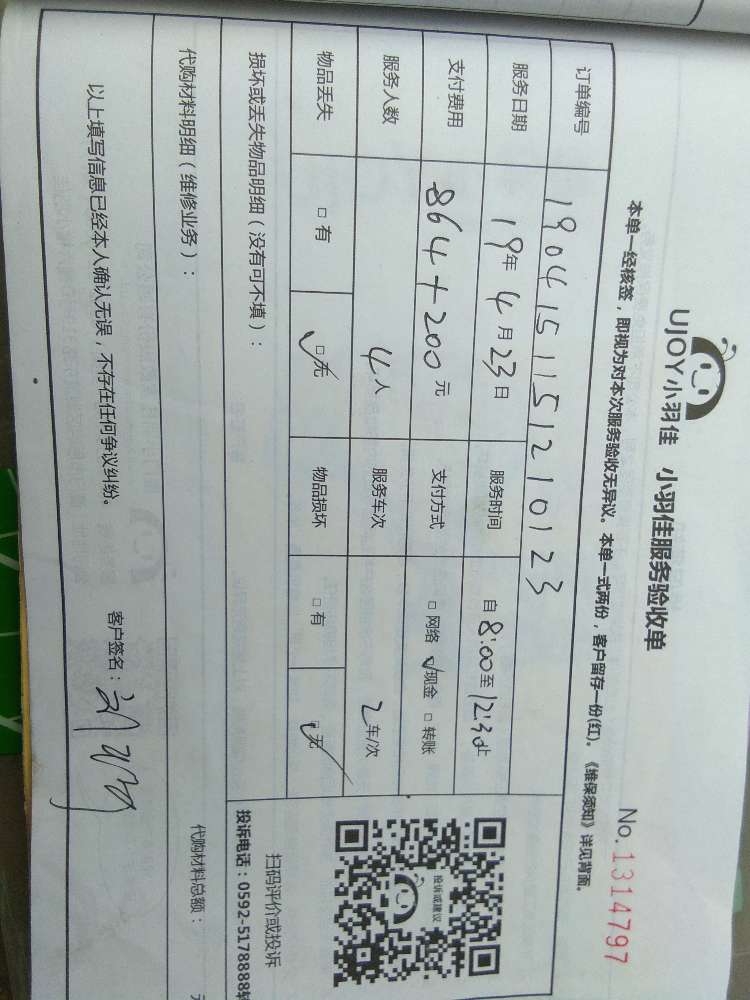 UJOY小羽佳 小羽佳服务验收单
No.1314797
本单一经核签，即视为对本次服务验收无异议。本单一式两份，客户留存一份(红)。《维保须知》详见背面。
订单编号 1904151151210123
服务日期 19年4月23日 服务时间 自8:00至12:30止
支付费用 864+200元 支付方式 □网络 ☑现金 □转账
服务人数 4人 服务车次 2车/次
物品丢失 □有 ☑无 物品损坏 □有 ☑无
投诉或建议
扫码评价或投诉
投诉电话：0592-5178888转
损坏或丢失物品明细（没有可不填）：
代购材料明细（维修业务）：
代购材料总额：
以上填写信息已经本人确认无误，不存在任何争议纠纷。
客户签名：